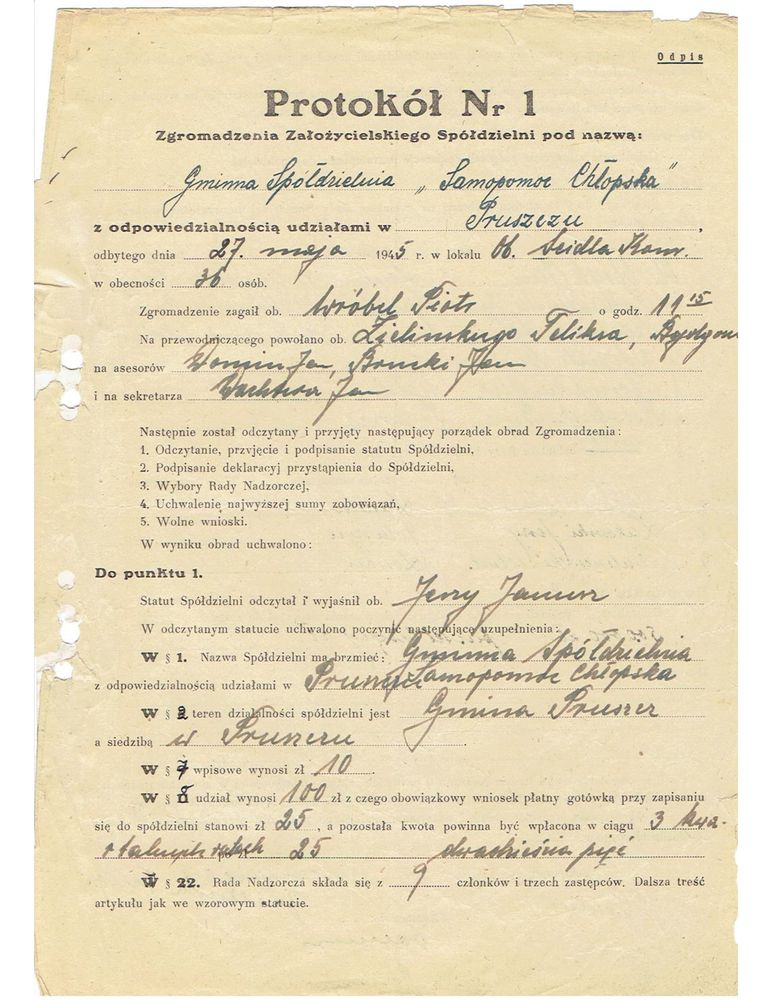 Odpis
Protokół Nr 1
Zgromadzenia Założycielskiego Spółdzielni pod nazwą:
Gminna Spółdzielnia „Samopomoc Chłopska"
z odpowiedzialnością udziałami w Pruszczu,
odbytego dnia 27. maja 1945 r. w lokalu Ob. Seidla Kom.
w obecności 36 osób.
Zgromadzenie zagaił ob. Wróbel Piotr o godz. 11 15
Na przewodniczącego powołano ob. Zielinskiego Feliksa,
na asesorów Jan, Jan
i na sekretarza Jan
Następnie został odczytany i przyjęty następujący porządek obrad Zgromadzenia:
1. Odczytanie, przyjęcie i podpisanie statutu Spółdzielni,
2. Podpisanie deklaracyj przystąpienia do Spółdzielni,
3. Wybory Rady Nadzorczej,
4. Uchwalenie najwyższej sumy zobowiązań,
5. Wolne wnioski.
W wyniku obrad uchwalono:
Do punktu 1.
Statut Spółdzielni odczytał i wyjaśnił ob. Jerzy Janusz
W odczytanym statucie uchwalono poczynić następujące uzupełnienia:
W § 1. Nazwa Spółdzielni ma brzmieć: Gminna Spółdzielnia
z odpowiedzialnością udziałami w Pruszcz Samopomoc Chłopska
W § 2 teren działalności spółdzielni jest Gmina Pruszcz
a siedzibą w Pruszczu.
W § 7 wpisowe wynosi zł 10.
W § 8 udział wynosi 100 zł z czego obowiązkowy wniosek płatny gotówką przy zapisaniu
się do spółdzielni stanowi zł 25, a pozostała kwota powinna być wpłacona w ciągu 3 kwar-
talnych ratach 25 dwadzieścia pięć
W § 22. Rada Nadzorcza składa się z 9 członków i trzech zastępców. Dalsza treść
artykułu jak we wzorowym statucie.